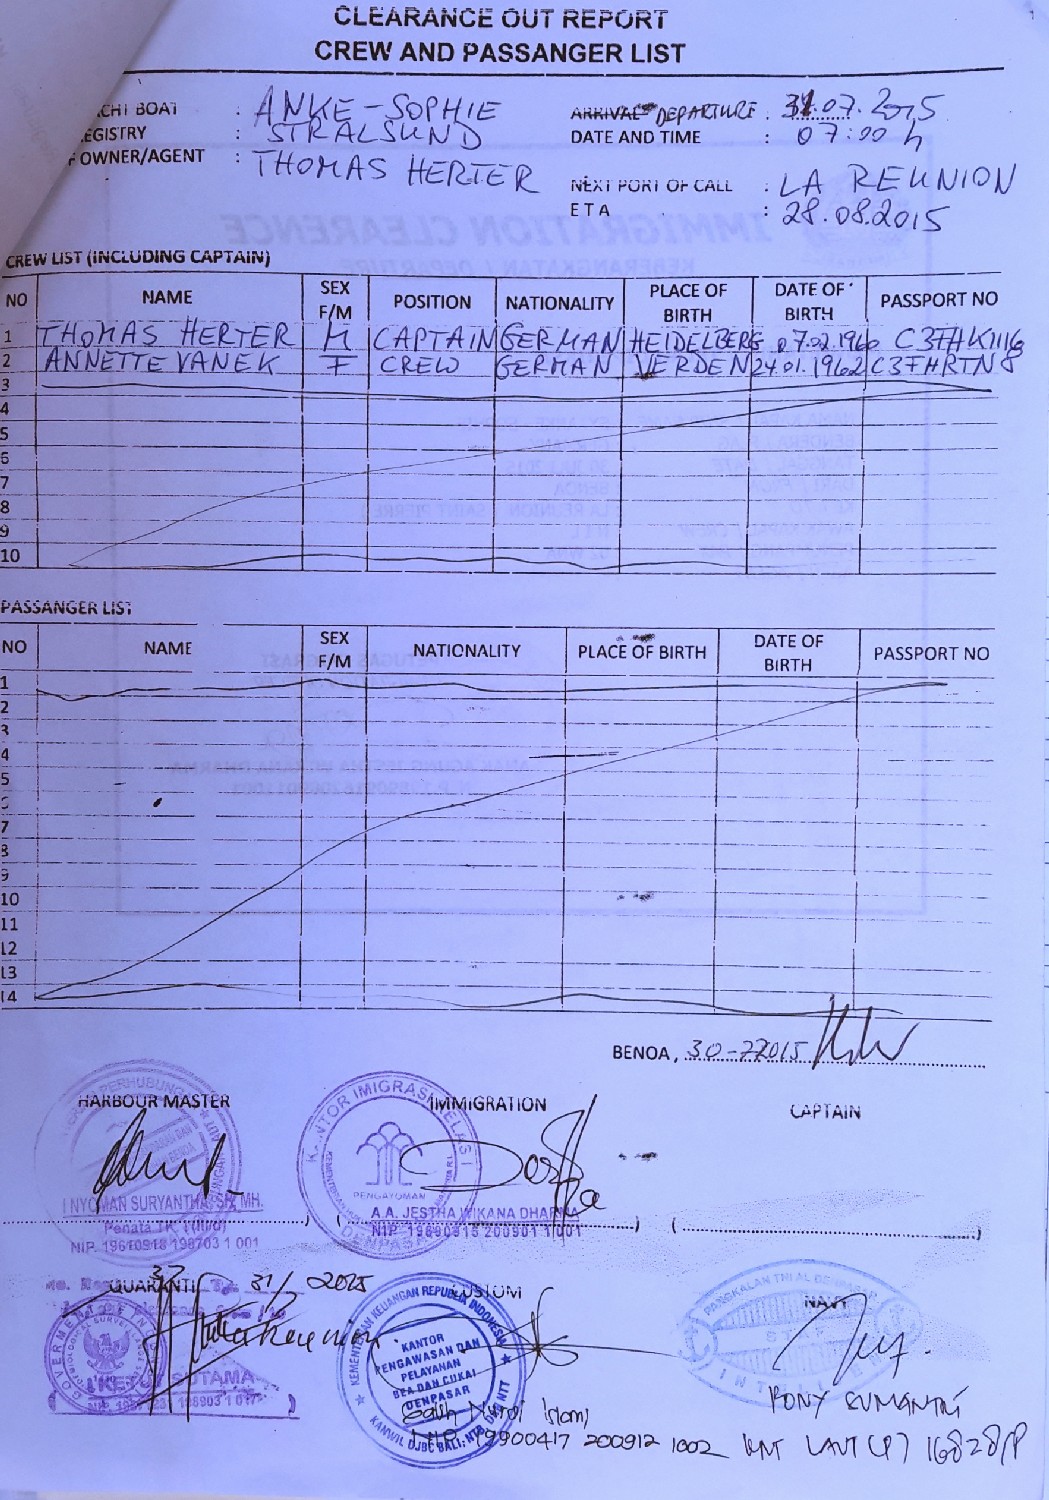 CLEARANCE OUT REPORT
CREW AND PASSANGER LIST
BOAT : ANKE-SOPHIE
: STRALSUND
OWNER/AGENT : THOMAS HERTER
ARRIVAL DEPARTURE : 31.07.2015
DATE AND TIME : 07:00 h
NEXT PORT OF CALL : LA REUNION
ETA : 28.08.2015
CREW LIST (INCLUDING CAPTAIN)
NO NAME SEX F/M POSITION NATIONALITY PLACE OF BIRTH DATE OF BIRTH PASSPORT NO
1 THOMAS HERTER M CAPTAIN GERMAN HEIDELBERG 07.02.1966
2 ANNETTE VANEK F CREW GERMAN VERDEN 24.01.1962 C3FHRTN8
3
4
5
6
7
8
9
10
PASSANGER LIST
NO NAME SEX F/M NATIONALITY PLACE OF BIRTH DATE OF BIRTH PASSPORT NO
1
2
3
4
5
7
8
9
10
11
12
13
14
BENOA, 30-7-2015
HARBOUR MASTER IMMIGRATION CAPTAIN
KANTOR IMIGRASI KELAS I
PENGAYOMAN
DENPASAR
I NYOMAN SURYANTHA, SH, MH.
Penata TK. I (III/d)
NIP. 19610918 198703 1 001
A.A. JESTHA WIKANA DHARMA
NIP. 19890915 200901 1 001
31/7 2015
CUSTOM
NAVY
KEMENTERIAN KEUANGAN REPUBLIK INDONESIA
KANTOR
PENGAWASAN DAN
PELAYANAN
BEA DAN CUKAI
DENPASAR
KANWIL DJBC BALI, NTB, DAN NTT
I KETUT SUTAMA
PANGKALAN TNI AL DENPASAR
INTELIJEN
Galih Nurdi Islami
NIP. 19900417 200912 1002
RONY SUMANTRI